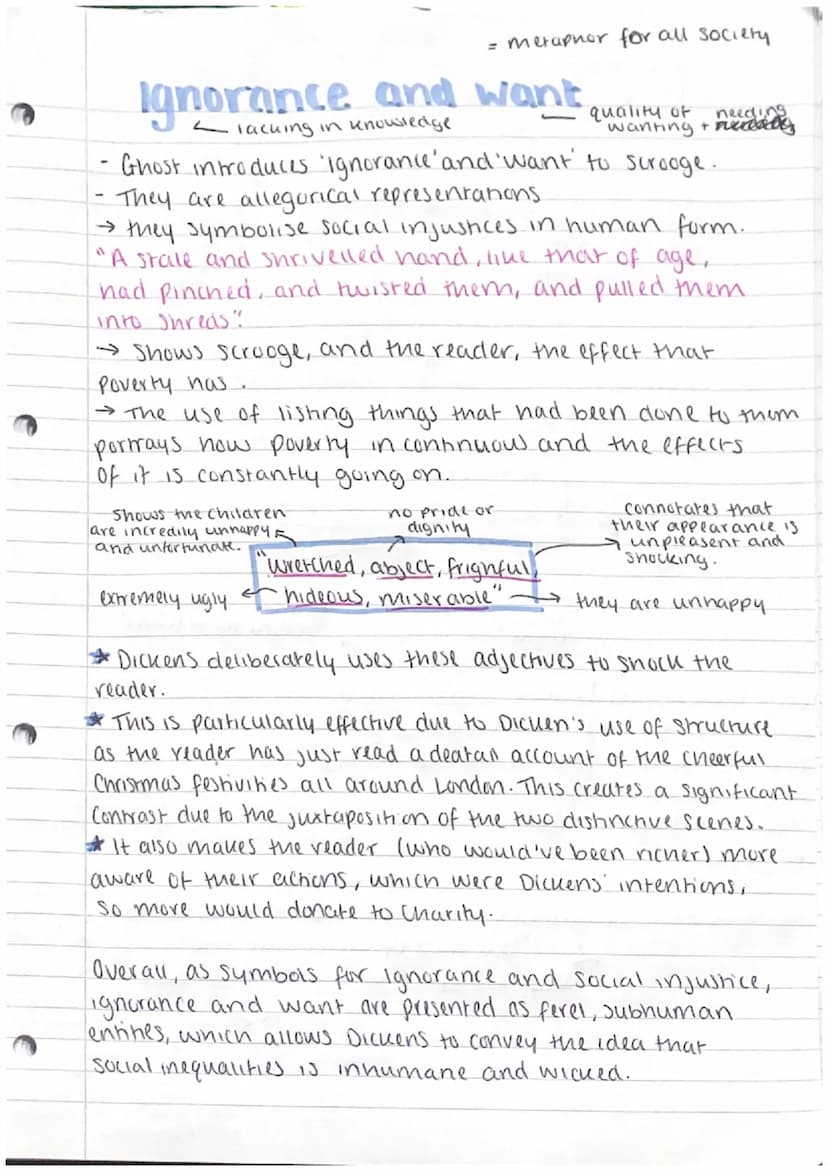 = metaphor for all society
Ignorance and want
← lacking in knowledge
— quality of needing
wanting +
- Ghost introduces 'ignorance' and 'want' to scrooge.
- They are allegorical representations
→ they symbolise social injustices in human form.
"A stale and shrivelled hand, like that of age,
had pinched, and twisted them, and pulled them
into shreds".
→ Shows scrooge, and the reader, the effect that
poverty has.
→ The use of listing things that had been done to them
portrays how poverty in continuous and the effects
of it is constantly going on.
Shows the children
are incredily unhappy
and unfortunate.
no pride or
dignity
connotates that
their appearance is
unpleasent and
shocking.
"Wretched, abject, frighful,
hideous, miserable"
extremely ugly
they are unhappy
★ Dickens deliberately uses these adjectives to shock the
reader.
★ This is particularly effective due to Dicken's use of structure
as the reader has just read a deatail account of the cheerful
Chrismas festivities all around London. This creates a significant
contrast due to the juxtaposition of the two distinctive scenes.
★ It also makes the reader (who would've been richer) more
aware of their actions, which were Dickens' intentions,
so more would donate to charity.
Overall, as symbols for ignorance and social injustice,
ignorance and want are presented as ferel, subhuman
entities, which allows Dickens to convey the idea that
social inequalities is inhumane and wicked.